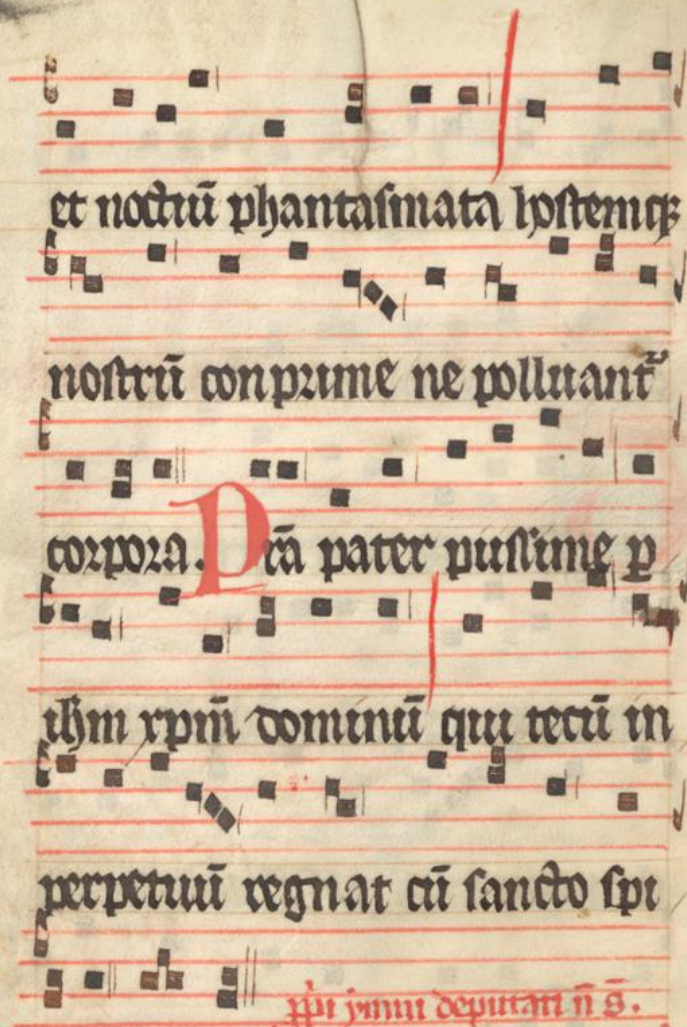 et noctiū phantasmata hostemqꝫ
nostrū conprime ne polluantᷣ
corpora. P̄sta pater piissime ꝑ
ihm xp̄m dominū qui tecū in
perpetuū regnat cū sancto spi
ymni deputati